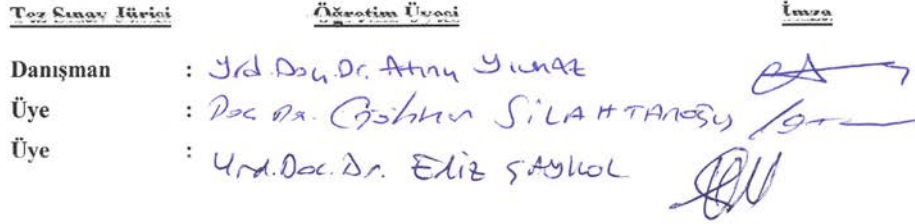 Tez Sınav Jürisi Öğretim Üyesi İmza
Danışman : Yrd.Doç.Dr. Atınç YILMAZ
Üye : Doç.Dr. Gökhan SİLAHTAROĞLU
Üye : Yrd.Doc.Dr. Ediz ŞAYKOL